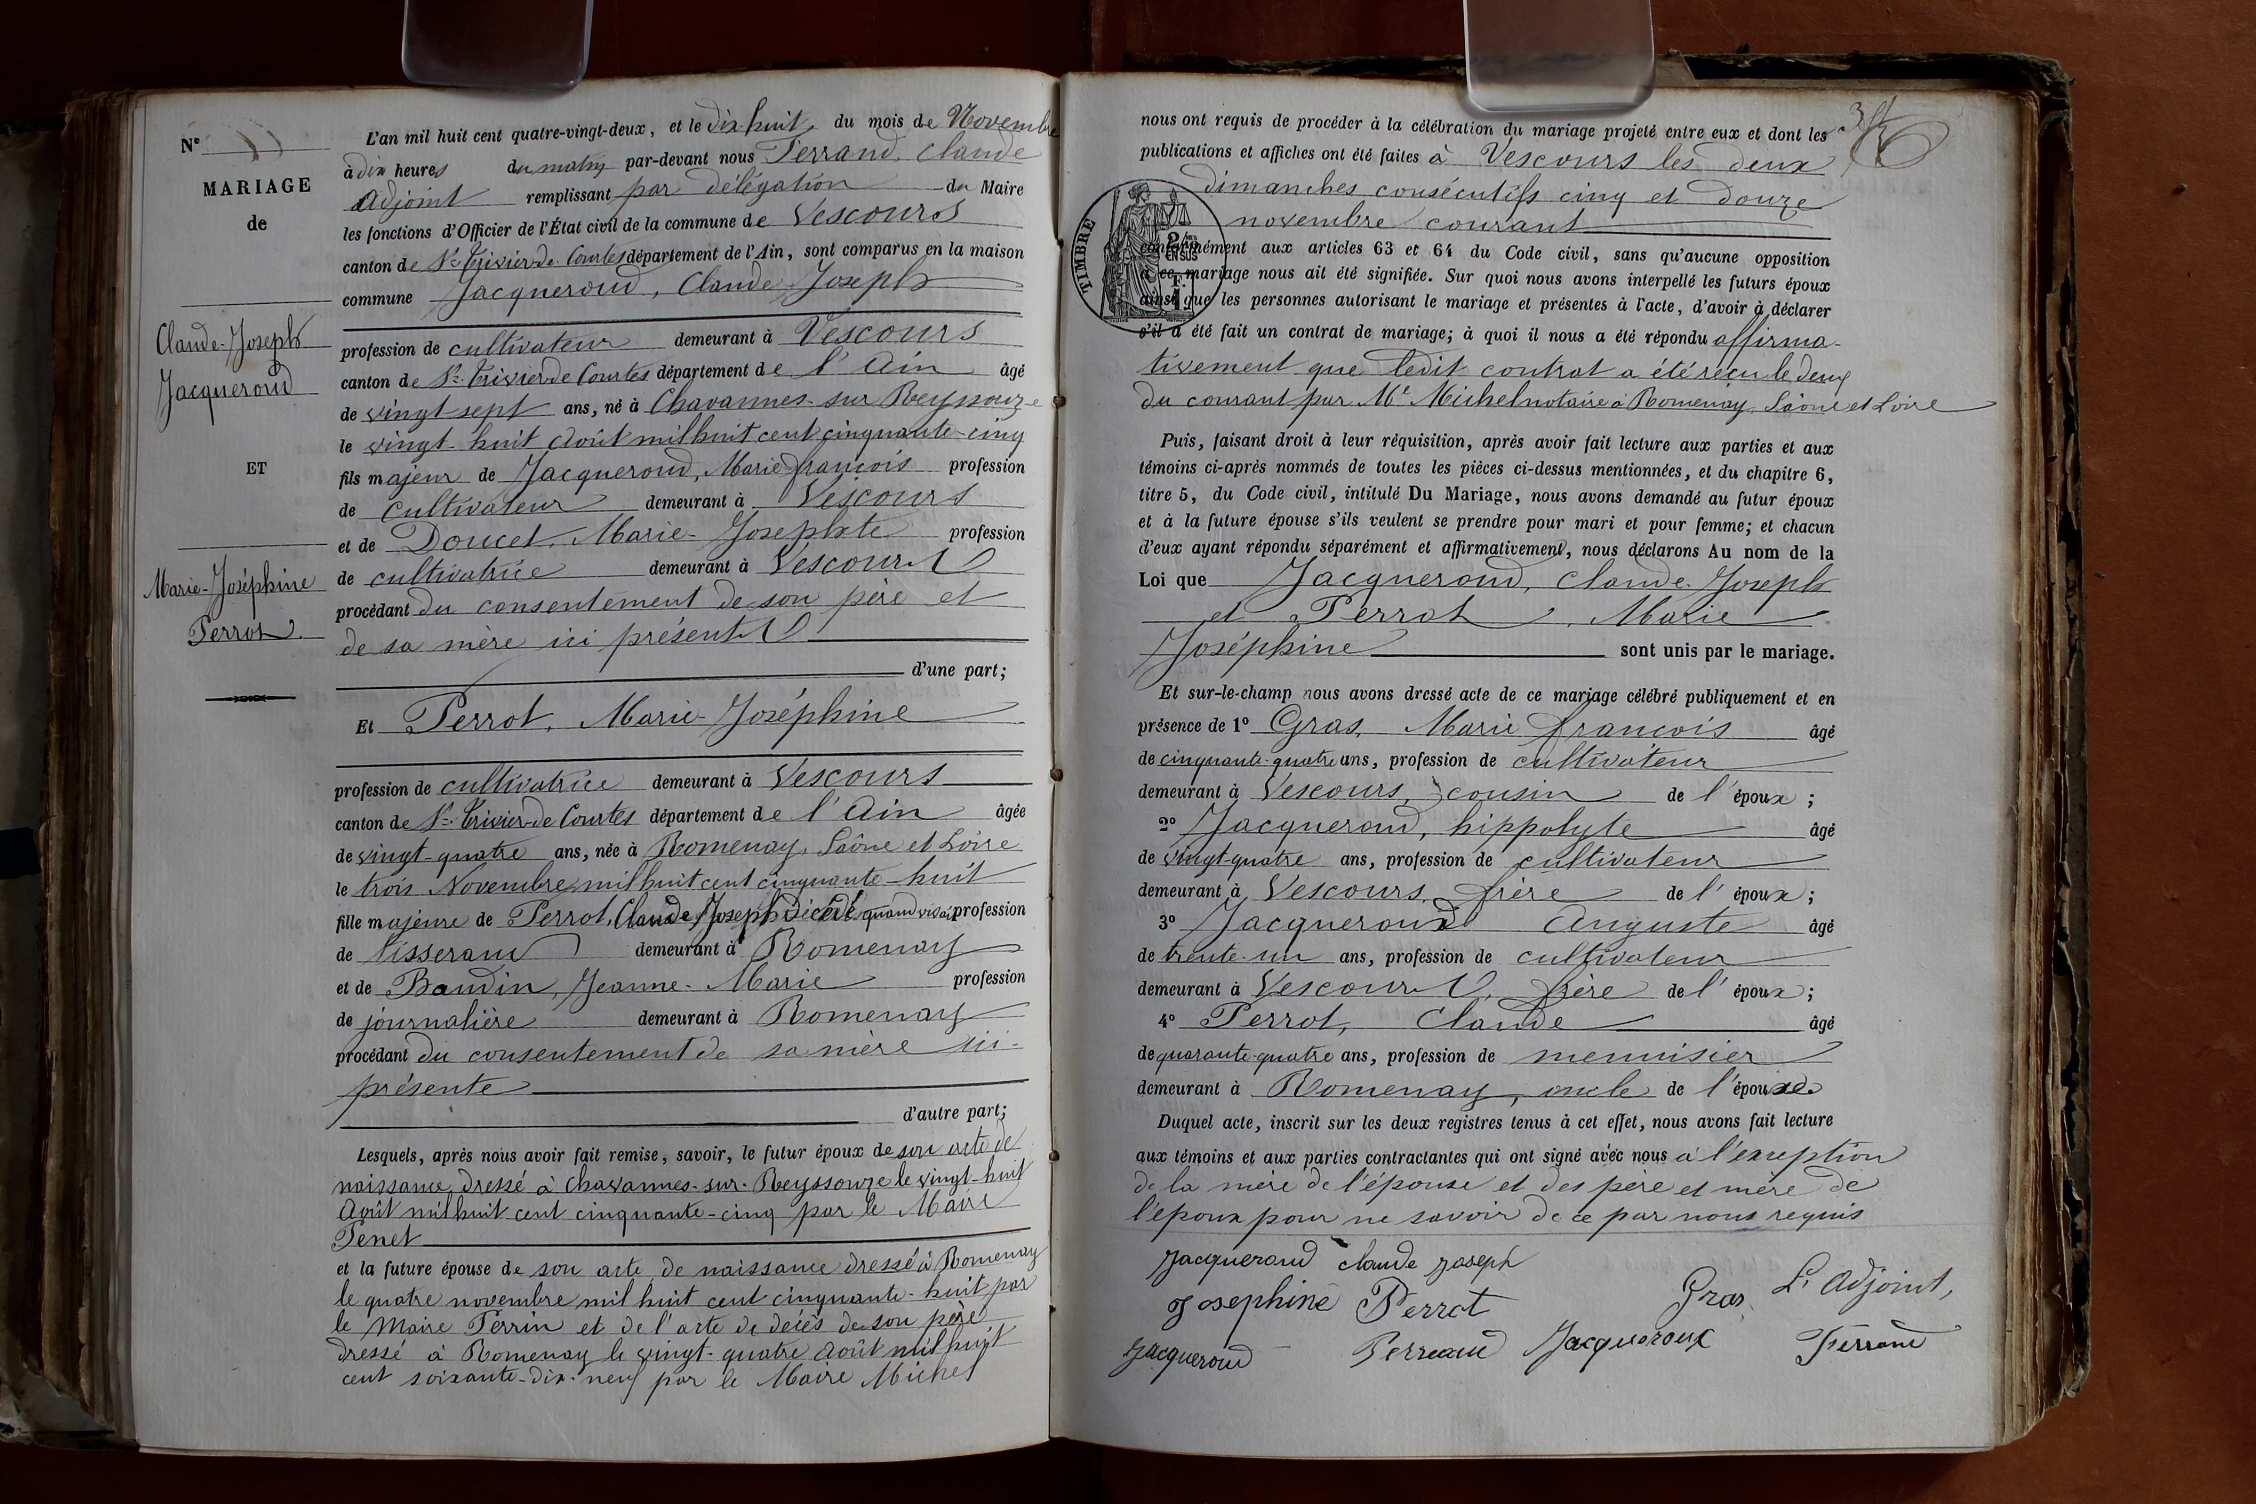 N° 11
MARIAGE
de
Claude-Joseph
Jacqueroud
ET
Marie-Joséphine
Perrot
L'an mil huit cent quatre-vingt-deux, et le dix huit du mois de Novembre
à dix heures du matin par-devant nous Ferrand, Claude
Adjoint remplissant par délégation du Maire
les fonctions d'Officier de l'État civil de la commune de Vescours
canton de St-Trivier-de Courtes département de l'Ain, sont comparus en la maison
commune Jacqueroud, Claude-Joseph
profession de cultivateur demeurant à Vescours
canton de St-Trivier-de Courtes département de l'Ain âgé
de vingt sept ans, né à Chavannes-sur Reyssouze
le vingt-huit Août mil huit cent cinquante-cinq
fils majeur de Jacqueroud, Marie-François profession
de cultivateur demeurant à Vescours
et de Doucet, Marie-Josephte profession
de cultivatrice demeurant à Vescours
procédant du consentement de son père et
de sa mère ici présents
d'une part;
Et Perrot, Marie-Joséphine
profession de cultivatrice demeurant à Vescours
canton de St-Trivier-de Courtes département de l'Ain âgée
de vingt-quatre ans, née à Romenay, Saône et Loire
le trois Novembre mil huit cent cinquante-huit
fille majeure de Perrot, Claude Joseph décédé quand vivait profession
de tisserand demeurant à Romenay
et de Baudin, Jeanne-Marie profession
de journalière demeurant à Romenay
procédant du consentement de sa mère ici-
présente
d'autre part;
Lesquels, après nous avoir fait remise, savoir, le futur époux de son acte de
naissance dressé à Chavannes-sur-Reyssouze le vingt-huit
Août mil huit cent cinquante-cinq par le Maire
Tenet
et la future épouse de son acte de naissance dressé à Romenay
le quatre novembre mil huit cent cinquante-huit par
le Maire Perrin et de l'acte de décès de son père
dressé à Romenay le vingt-quatre Août mil huit
cent soixante-dix-neuf par le Maire Michel
nous ont requis de procéder à la célébration du mariage projeté entre eux et dont les
publications et affiches ont été faites à Vescours les deux
dimanches consécutifs cinq et douze
novembre courant
TIMBRE
2/10 EN SUS
1 F.
conformément aux articles 63 et 64 du Code civil, sans qu'aucune opposition
à ce mariage nous ait été signifiée. Sur quoi nous avons interpellé les futurs époux
ainsi que les personnes autorisant le mariage et présentes à l'acte, d'avoir à déclarer
s'il a été fait un contrat de mariage; à quoi il nous a été répondu affirma-
tivement que ledit contrat a été reçu le deux
du courant par Me Michel notaire à Romenay, Saône et Loire
Puis, faisant droit à leur réquisition, après avoir fait lecture aux parties et aux
témoins ci-après nommés de toutes les pièces ci-dessus mentionnées, et du chapitre 6,
titre 5, du Code civil, intitulé Du Mariage, nous avons demandé au futur époux
et à la future épouse s'ils veulent se prendre pour mari et pour femme; et chacun
d'eux ayant répondu séparément et affirmativement, nous déclarons Au nom de la
Loi que Jacqueroud, Claude-Joseph
et Perrot, Marie
Joséphine sont unis par le mariage.
Et sur-le-champ nous avons dressé acte de ce mariage célébré publiquement et en
présence de 1° Gras, Marie François âgé
de cinquante-quatre ans, profession de cultivateur
demeurant à Vescours, cousin de l'époux;
2° Jacqueroud, hippolyte âgé
de vingt-quatre ans, profession de cultivateur
demeurant à Vescours, frère de l'époux;
3° Jacqueroud Auguste âgé
de trente-un ans, profession de cultivateur
demeurant à Vescours, frère de l'époux;
4° Perrot, Claude âgé
de quarante-quatre ans, profession de menuisier
demeurant à Romenay, oncle de l'épouse
Duquel acte, inscrit sur les deux registres tenus à cet effet, nous avons fait lecture
aux témoins et aux parties contractantes qui ont signé avec nous à l'exception
de la mère de l'épouse et des père et mère de
l'époux pour ne savoir de ce par nous requis
Jacqueroud claude joseph
Josephine Perrot Gras L'Adjoint,
Jacqueroud Perreaud Jacqueroux Ferrand